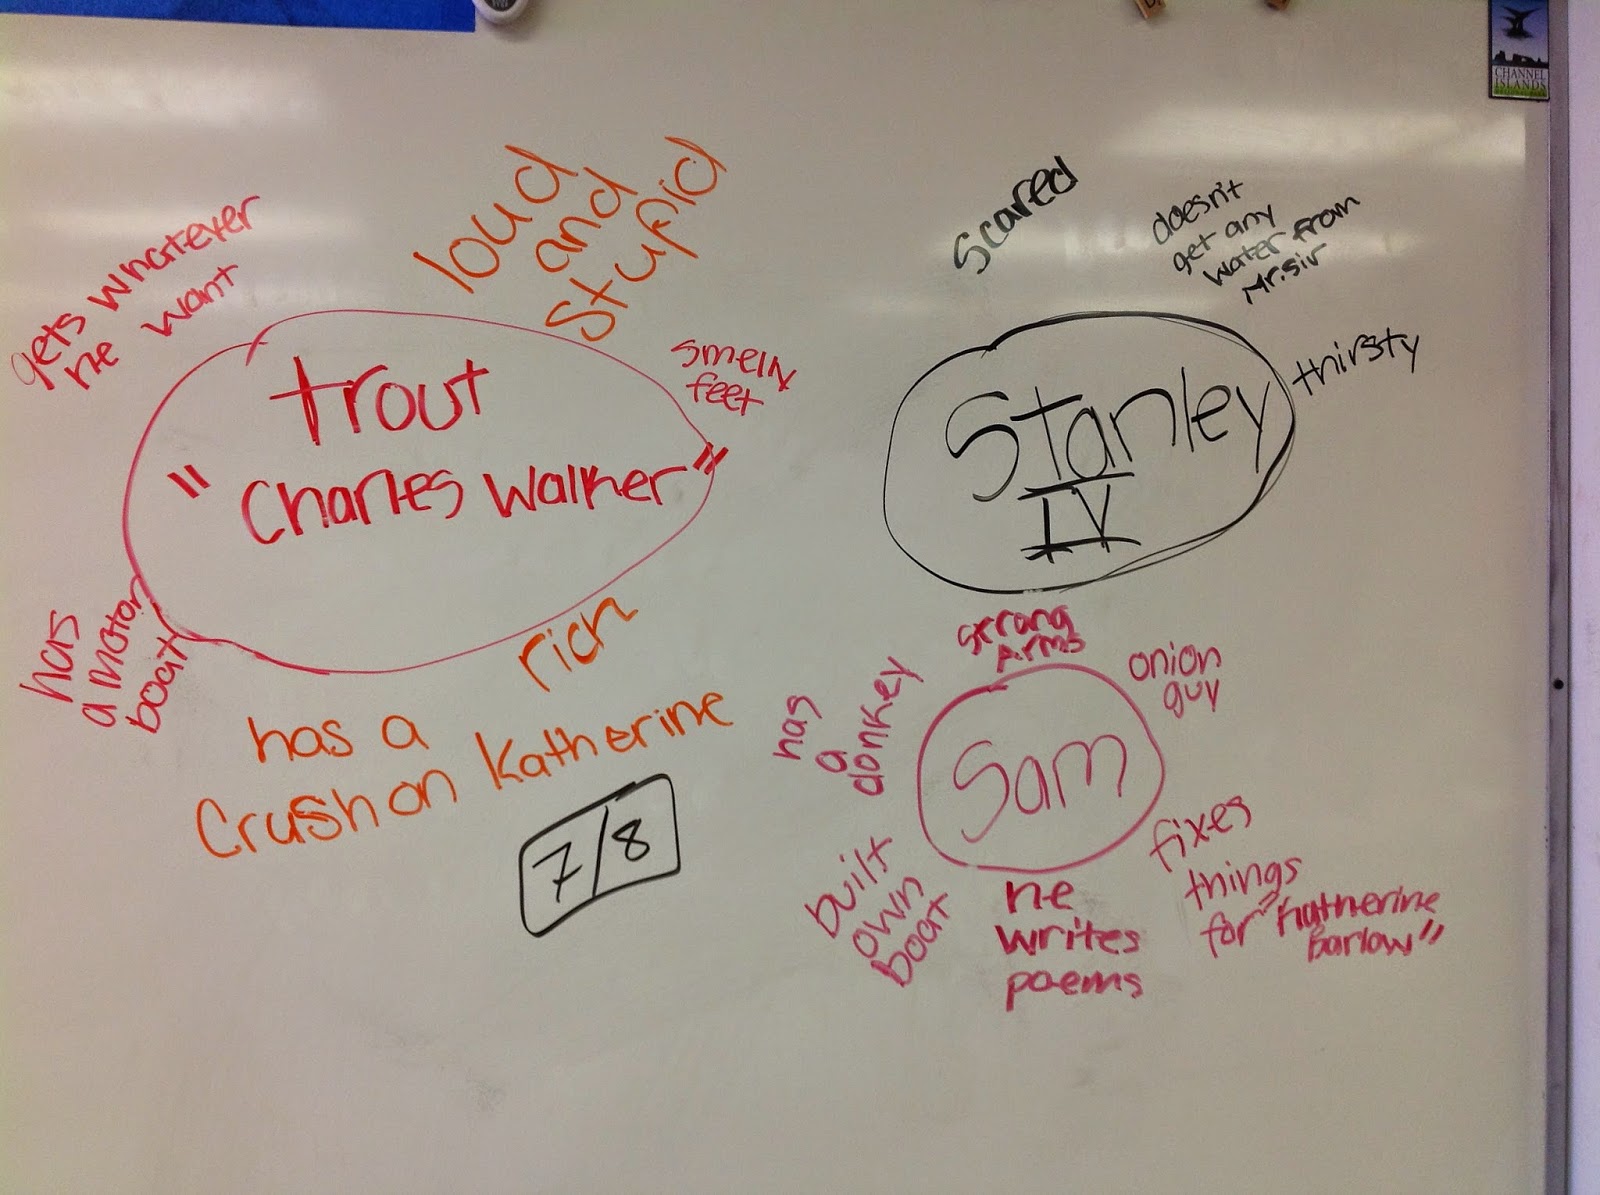 gets whatever
he want
loud
and
stupid
smelly
feet
trout
" Charles Walker"
has
a motor
boat
rich
has a
Crush on Katherine
7/8
Scared
doesn't
get any
water from
Mr. sir
thirsty
Stanley
IV
strong
Arms
onion
guy
has
a
donkey
Sam
built
own
boat
he
writes
poems
fixes
things
for "Katherine
Barlow"
CHANNEL
ISLANDS